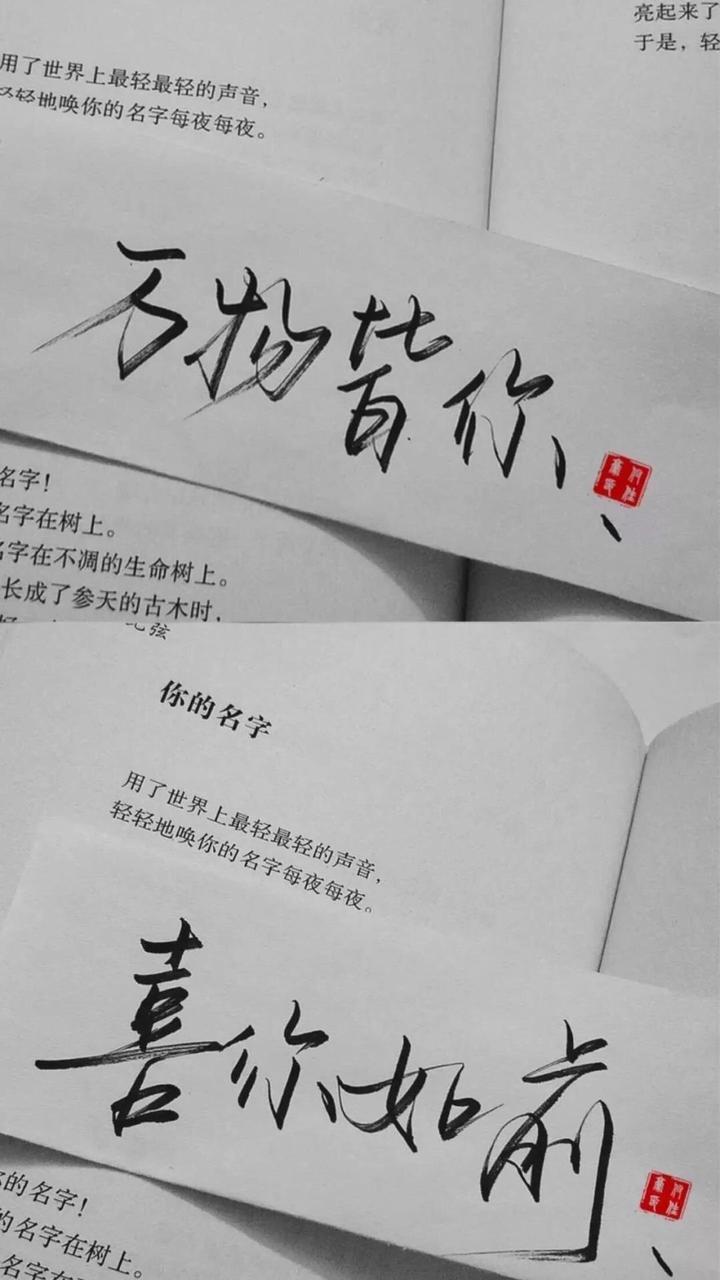 用了世界上最轻最轻的声音，
轻轻地唤你的名字每夜每夜。
亮起来了
于是，轻
万物皆你、
名字！
名字在树上。
名字在不凋的生命树上。
长成了参天的古木时，
弦
你的名字
用了世界上最轻最轻的声音，
轻轻地唤你的名字每夜每夜。
喜你如前、
你的名字！
的名字在树上。
名字在